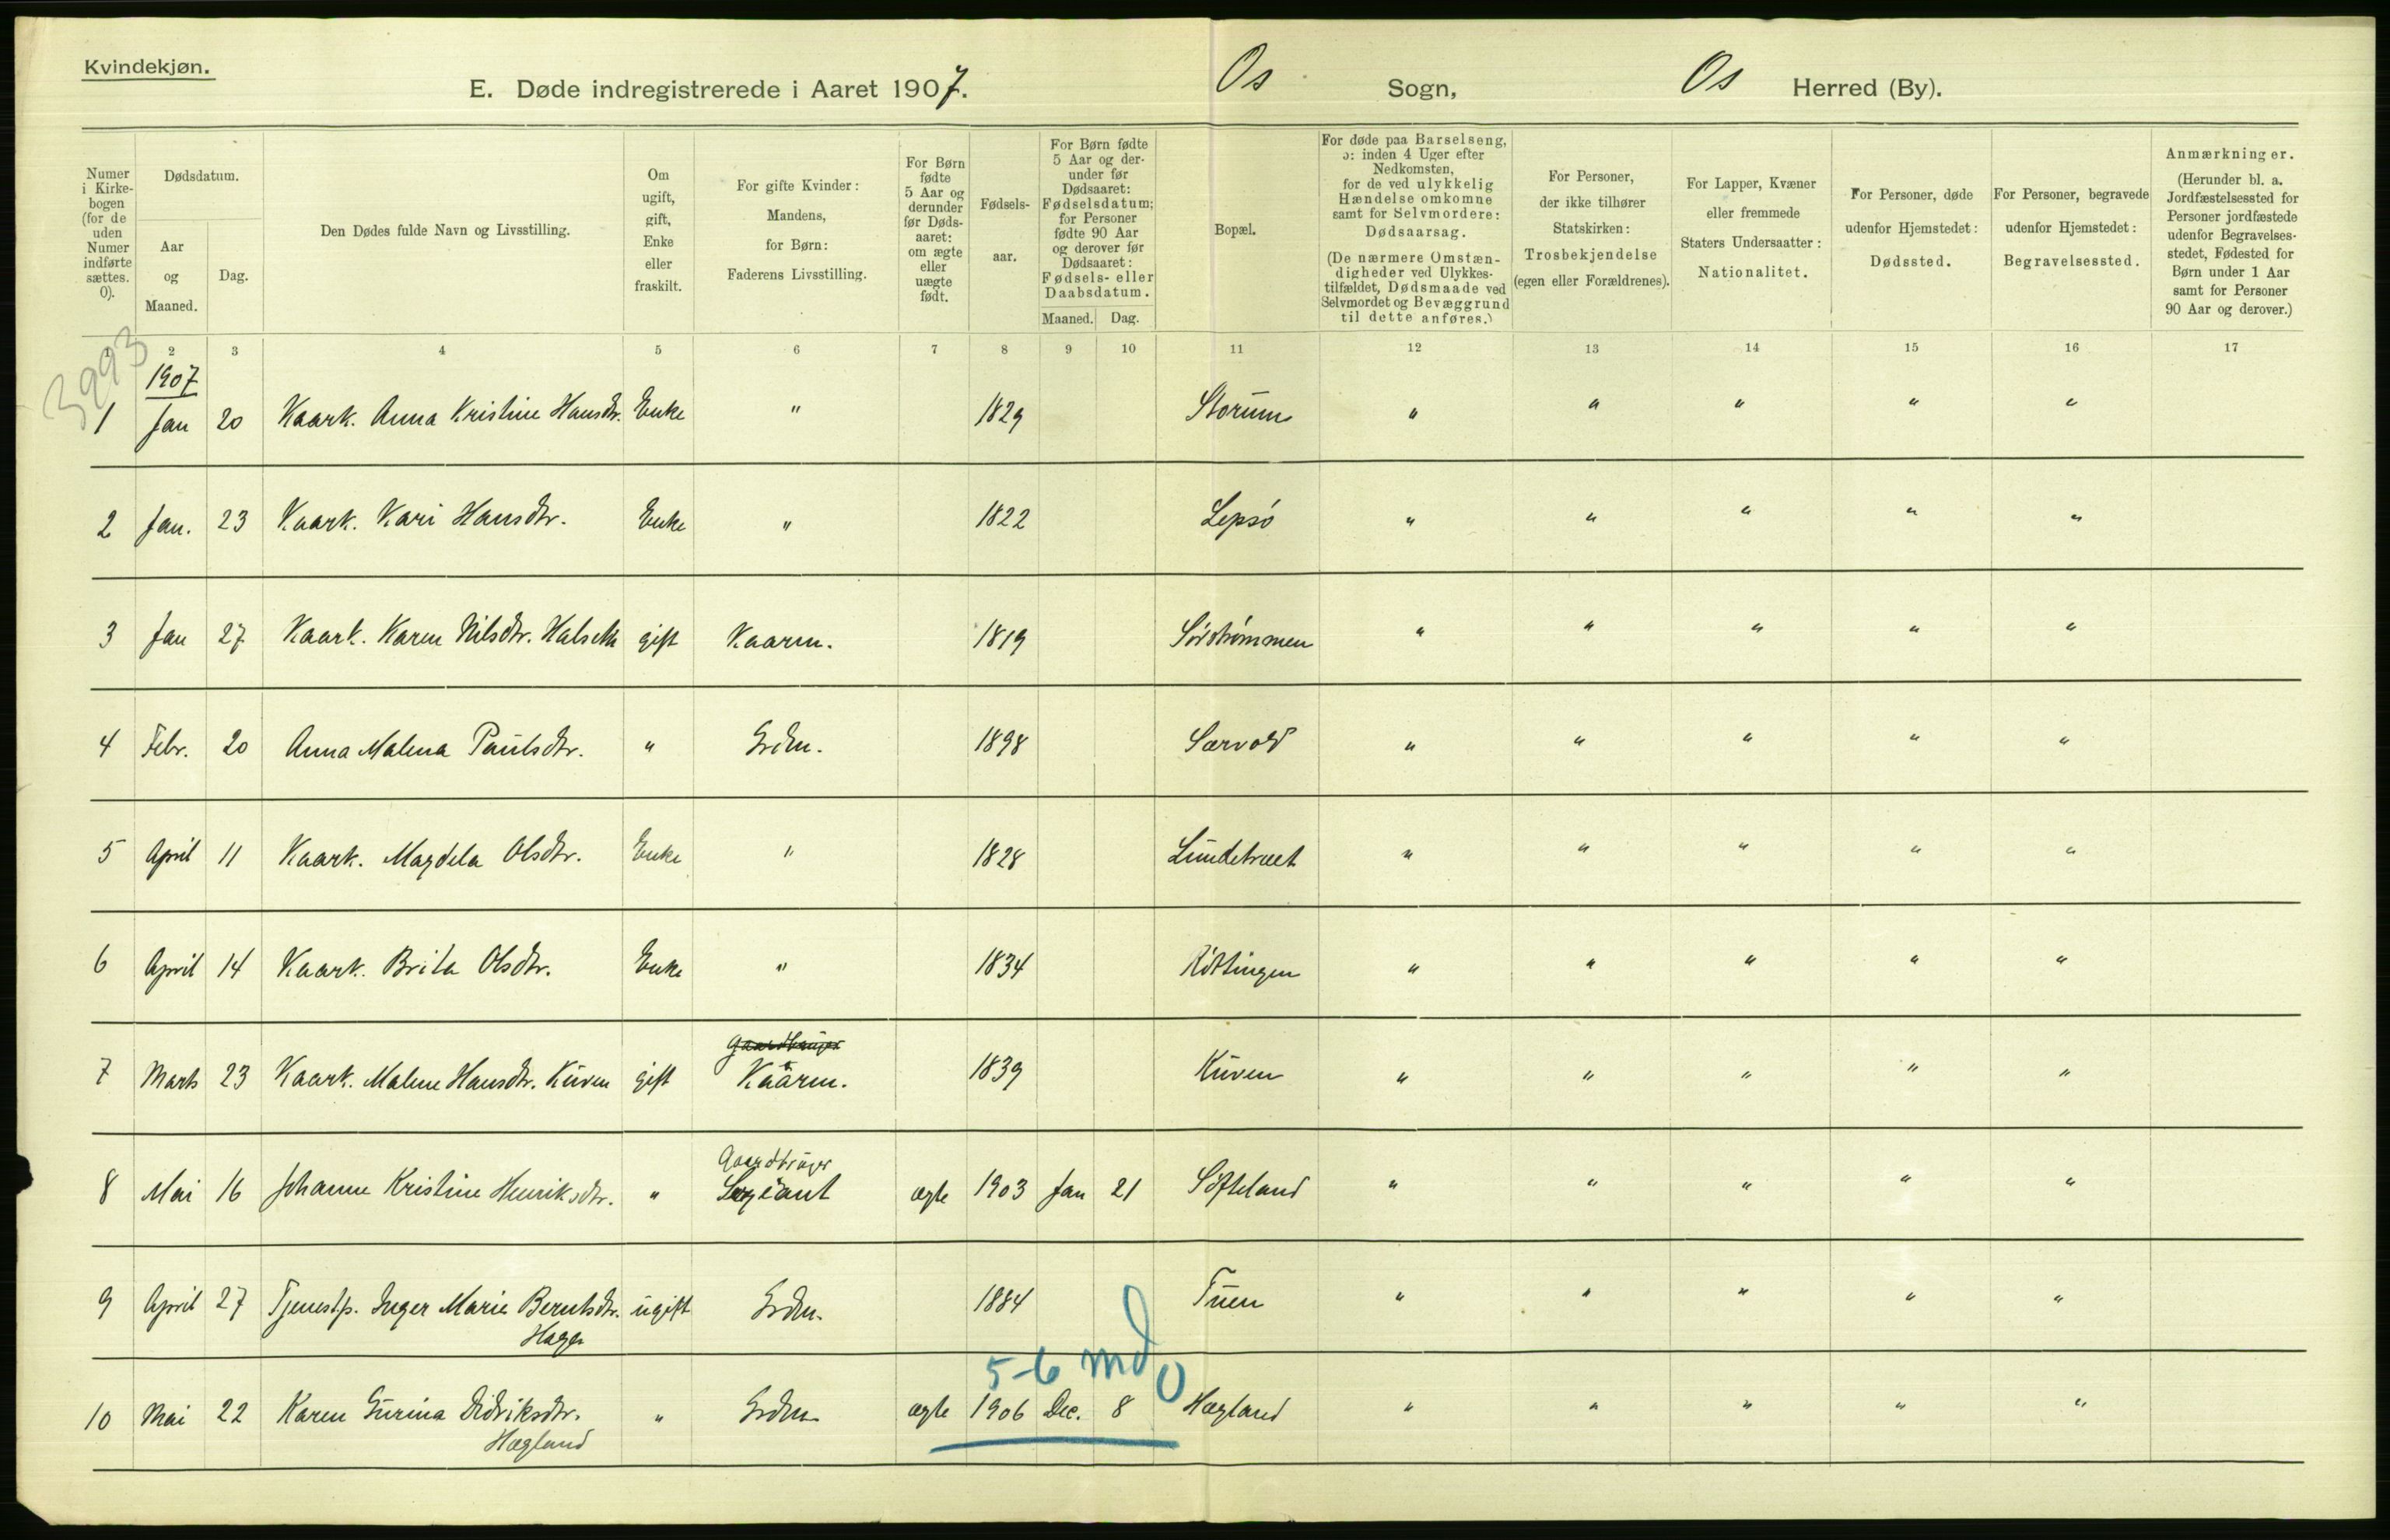 Kvindekjøn.
E. Døde indregistrerede i Aaret 1907. Os Sogn, Os Herred (By).
Numer i Kirke- bogen (for de uden Numer indførte sættes. 0).
Dødsdatum.
Aar og Maaned.
Dag.
Den Dødes fulde Navn og Livsstilling.
Om ugift, gift, Enke eller fraskilt.
For gifte Kvinder: Mandens, for Børn: Faderens Livsstilling.
For Børn fødte 5 Aar og derunder før Døds- aaret: om ægte eller uægte født.
Fødsels- aar.
For Børn fødte 5 Aar og der- under før Dødsaaret: Fødselsdatum; for Personer fødte 90 Aar og derover før Dødsaaret: Fødsels- eller Daabsdatum.
Maaned. Dag.
Bopæl.
For døde paa Barselseng, ɔ: inden 4 Uger efter Nedkomsten, for de ved ulykkelig Hændelse omkomne samt for Selvmordere: Dødsaarsag.
(De nærmere Omstæn- digheder ved Ulykkes- tilfældet, Dødsmaade ved Selvmordet og Bevæggrund til dette anføres.)
For Personer, der ikke tilhører Statskirken: Trosbekjendelse (egen eller Forældrenes).
For Lapper, Kvæner eller fremmede Staters Undersaatter: Nationalitet.
For Personer, døde udenfor Hjemstedet: Dødssted.
For Personer, begravede udenfor Hjemstedet: Begravelsessted.
Anmærkninger.
(Herunder bl. a. Jordfæstelsessted for Personer jordfæstede udenfor Begravelses- stedet, Fødested for Børn under 1 Aar samt for Personer 90 Aar og derover.)
1 2 3 4 5 6 7 8 9 10 11 12 13 14 15 16 17
3993
1907
1 Jan 20 Kaark. Anna Kristine Hansdtr. Enke " 1829 Storum " " " " "
2 Jan. 23 Kaark. Kari Hansdtr. Enke " 1822 Lepsö " " " " "
3 Jan 27 Kaark. Karen Nilsdtr. Halseth gift Kaarm. 1819 Sörströmmen " " " " "
4 Febr. 20 Anna Malena Paulsdtr. " Grdm. 1898 Særvold " " " " "
5 April 11 Kaark. Magdela Olsdtr. Enke " 1828 Lundetræet " " " " "
6 April 14 Kaark. Brita Olsdtr. Enke " 1834 Röttingen " " " " "
gaardbruger
7 Marts 23 Kaark. Malene Hansdtr. Kuven gift Kaarm. 1839 Kuven " " " " "
Gaardbruger
8 Mai 16 Johanne Kristine Henriksdtr. " Sergeant ægte 1903 Jan 21 Söfteland " " " " "
9 April 27 Tjenestp. Inger Marie Berntsdtr. ugift Grdm. 1884 Tuen " " " " "
Hage
5-6 md 0
10 Mai 22 Karen Gurina Didriksdtr. " Grdm ægte 1906 Dec. 8 Hægland " " " " "
Hægland